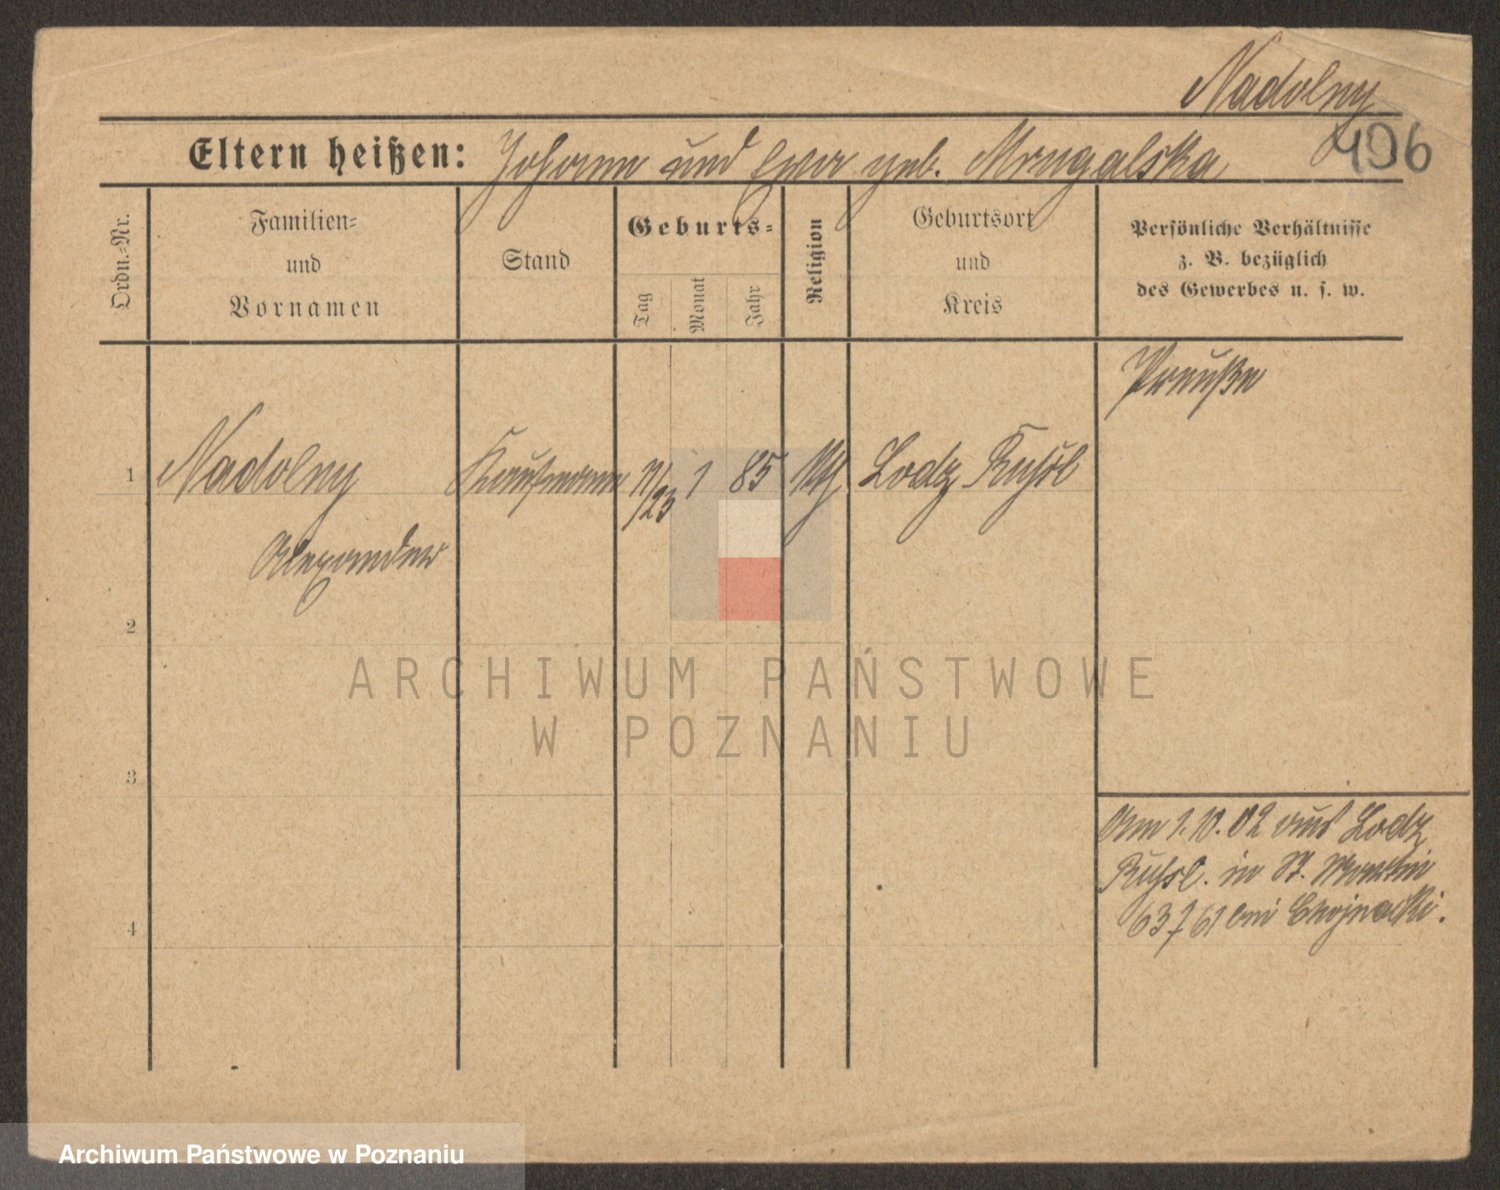 Nadolny
496
Eltern heißen: Johann und Ewa geb. Mrugalska
Ordn.-Nr.
Familien=
und
Vornamen
Stand
Geburts=
Tag
Monat
Jahr
Religion
Geburtsort
und
Kreis
Persönliche Verhältnisse
z. B. bezüglich
des Gewerbes u. s. w.
Preuße
1 Nadolny Kaufmann 11/23 1 85 kth Lodz Rußl
Alexander
2
3
4
Am 1.10.02 aus Lodz
Rußl. in St. Martin
63 z 61 bei Chojnacki.
ARCHIWUM PAŃSTWOWE
W POZNANIU
Archiwum Państwowe w Poznaniu